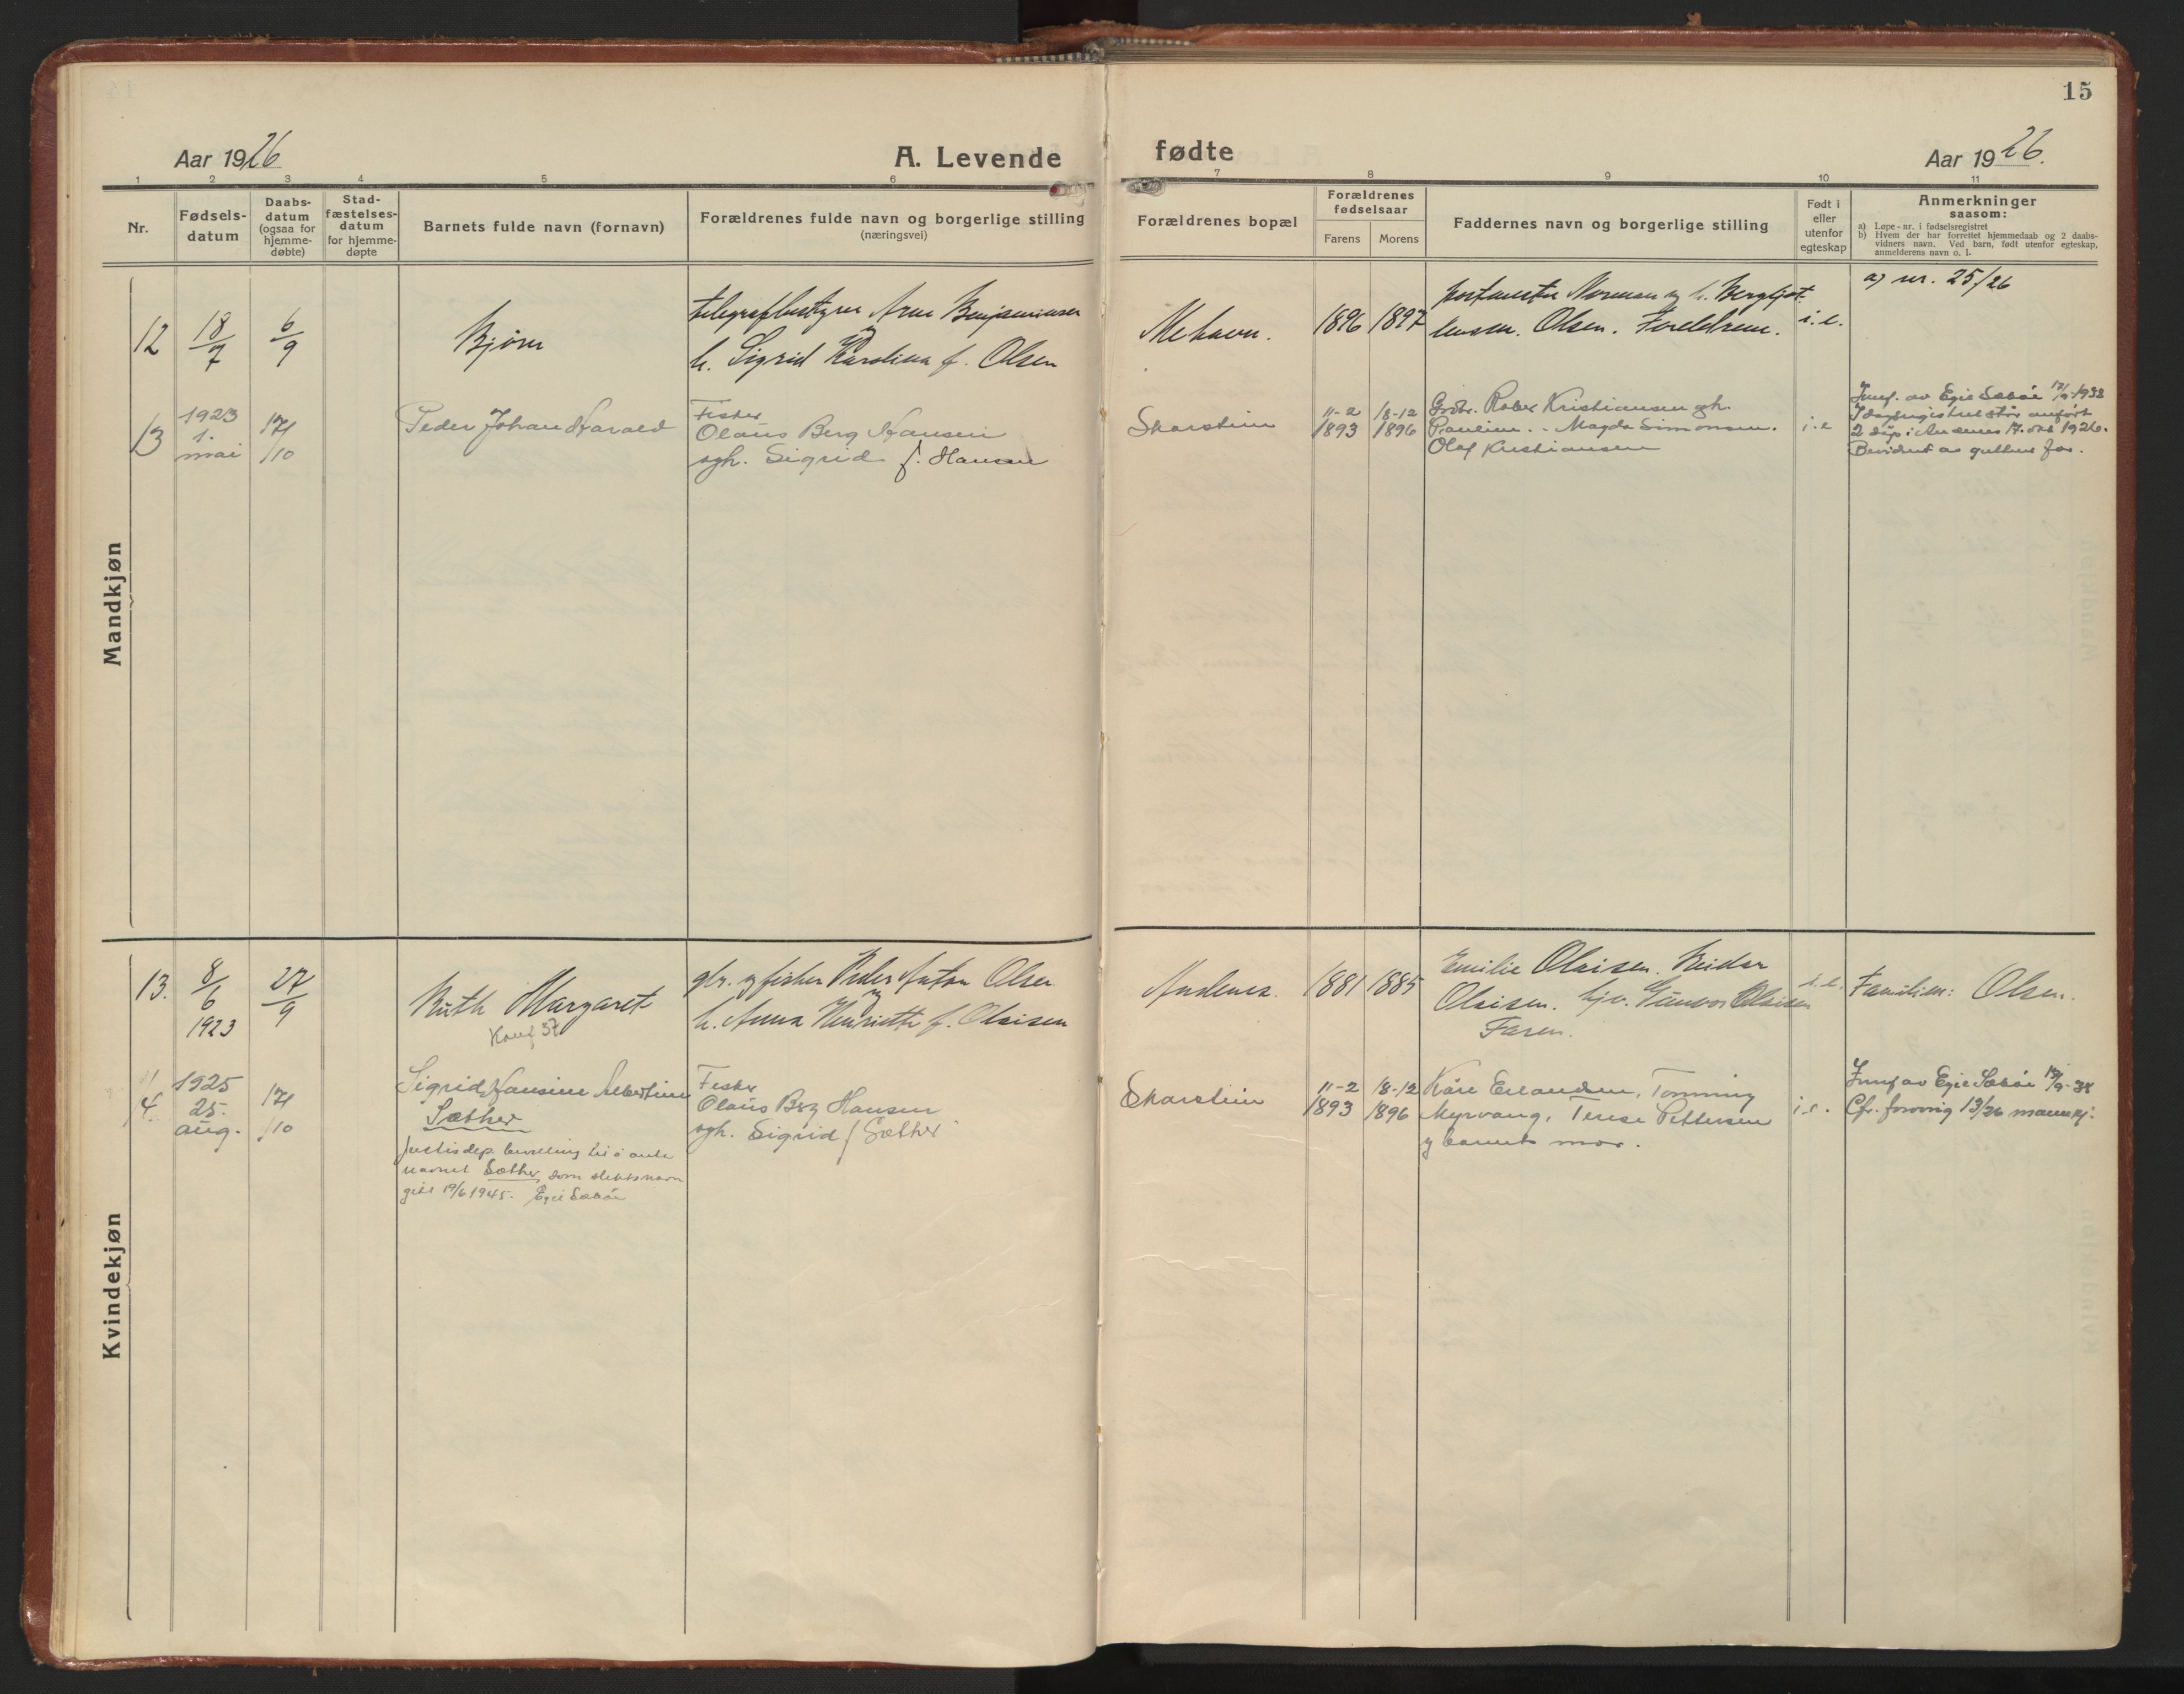 15
Aar 1926
A. Levende
fødte
Aar 1926.
1 2 3 4 5 6 7 8 9 10 11
Nr.
Fødsels-
datum
Daabs-
datum
(ogsaa for
hjemme-
døbte)
Stad-
fæstelses-
datum
for hjemme-
døpte
Barnets fulde navn (fornavn)
Forældrenes fulde navn og borgerlige stilling
(næringsvei)
Forældrenes bopæl
Forældrenes
fødselsaar
Farens Morens
Faddernes navn og borgerlige stilling
Født i
eller
utenfor
egteskap
Anmerkninger
saasom:
a) Løpe-nr. i fødselsregistret
b) Hvem der har forrettet hjemmedaab og 2 daabs-
vidners navn. Ved barn, født utenfor egteskap,
anmelderens navn o. l.
Mandkjøn
12
18/7
6/9
Bjørn
telegrafbestyrer Arne Benjaminsen
og
h. Sigrid Karolina f. Olsen
Mehavn.
1896 1897
h. Bergljot
Olsen. Foreldrene.
i.e.
a) nr. 25/26
13
1923
1.
mai
17/10
Peder Johan Harald
Fisker
Olaus Berg Hansen
ogh. Sigrid f. Hansen
Skarstein
11-2
1893
18-12
1896
Kristiansen ogh.
Magda Simonsen.
Olaf Kristiansen
i.e
Innf. av Egil Sæbøe 17/9 1938
I dåpsregistret står anført
2 dåp i Andenes 17. okt 1926.
Bevidnet av guttens far.
Kvindekjøn
13.
8/6
1923
27/9
Ruth Margaret
Konf 37
gbr. og fisker Peder Anton Olsen
og
h. Anna Henriette f. Olaisen
Andenes.
1881 1885
Emilie Olaisen. Reidar
Olaisen. Gunvor Olaisen
Faren.
i.e.
Familien: Olsen.
14.
1925
25.
aug.
17/10
Sigrid Hansine Albertine
Sæther
Justisdep. bevilling til å anta
navnet Sæther, som slektsnavn
gitt 19/6 1945. Egil Sæbøe
Fisker
Olaus Berg Hansen
ogh. Sigrid f Sæther
Skarstein
11-2
1893
18-12
1896
Kåre Erlandsen, Tomming
Myrvang, Terese Pettersen
og barnets mor.
i.e.
Innf av Egil Sæbøe 17/9-38
Cfr. forøvrig 13/26 mannkj.